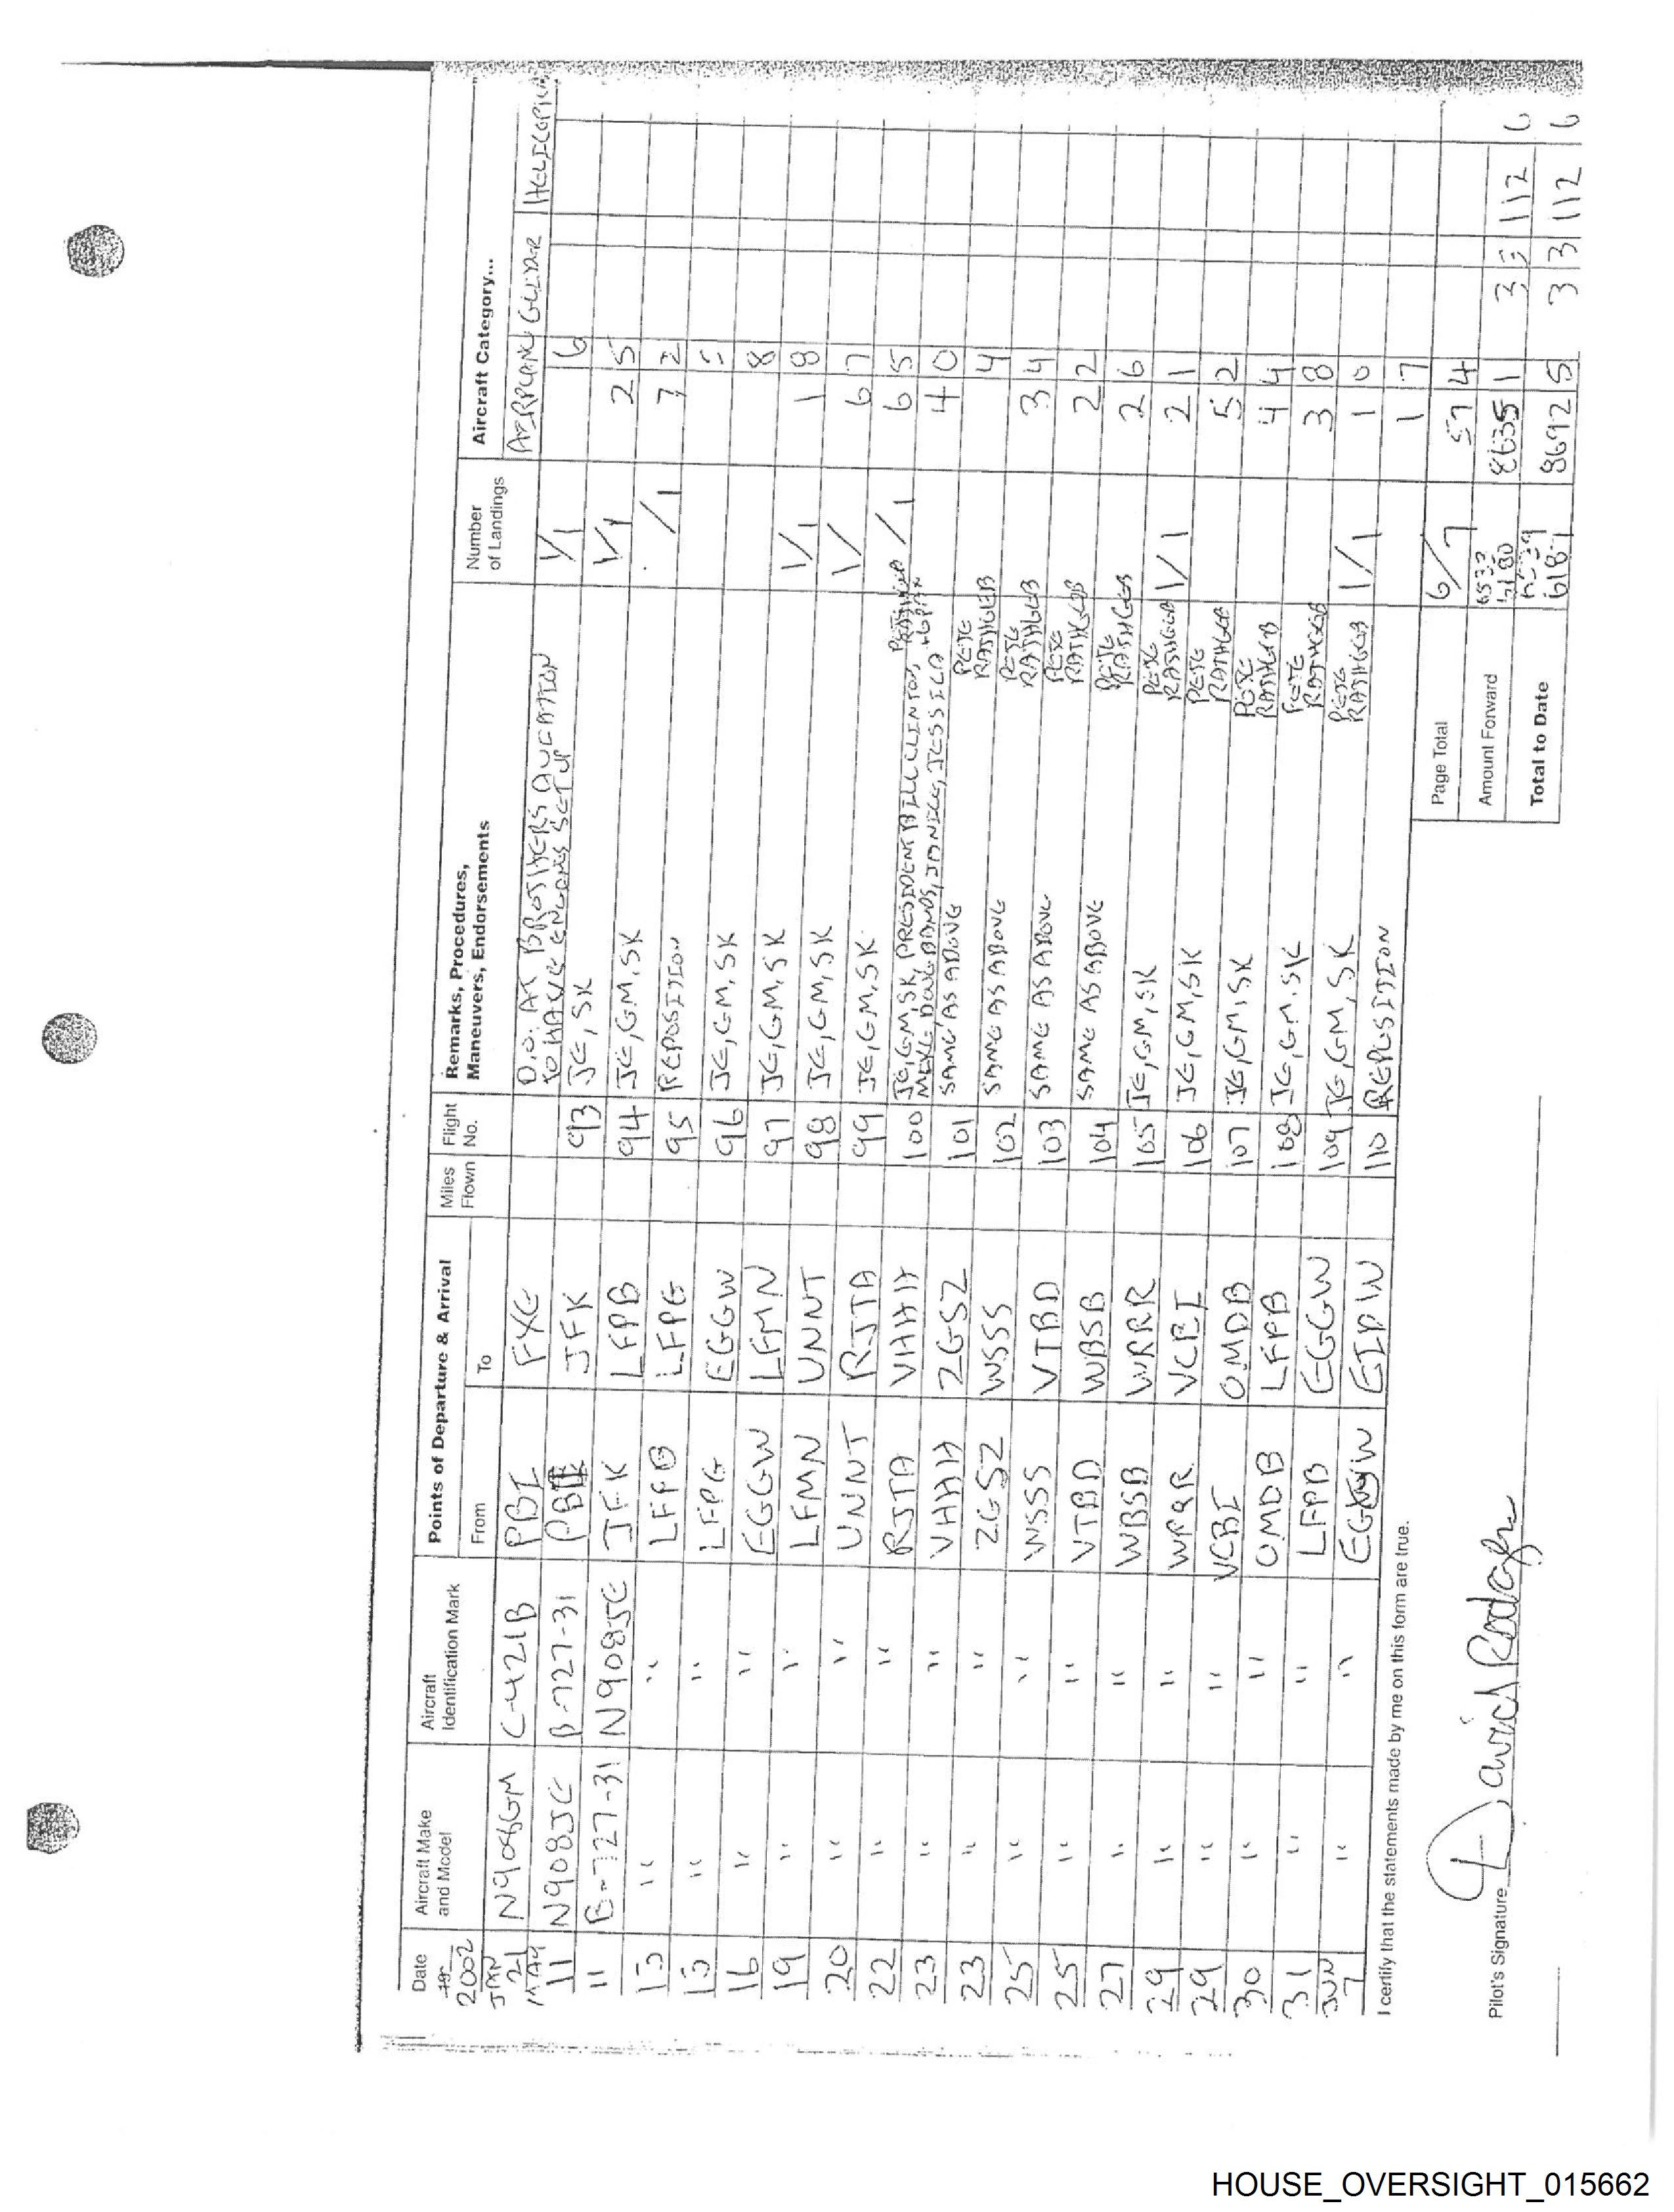 Date 19 2002
Aircraft Make and Model
Aircraft Identification Mark
Points of Departure & Arrival
From
To
Miles Flown
Flight No.
Remarks, Procedures, Maneuvers, Endorsements
Number of Landings
Aircraft Category...
AIRPLANE GLIDER HELICOPTER
JAN 21 N908GM C-421B PBI FXE D.O. AT BROTHERS AVIATION TO HAVE ENGINES SET UP 1/1 6
MAY 11 N908JE B-727-31 PBI JFK 93 JE, SK 1/1 2 5
11 B-727-31 N908JE JFK LFPB 94 JE, GM, SK /1 7 2
13 " " LFPB LFPG 95 REPOSITION 5
13 " " LFPG EGGW 96 JE, GM, SK 8
16 " " EGGW LFMN 97 JE, GM, SK 1/1 1 8
19 " " LFMN UNNT 98 JE, GM, SK 1/ 6 7
20 " " UNNT RJTA 99 JE, GM, SK /1 6 5
22 " " RJTA VHHH 100 JE, GM, SK, PRESIDENT BILL CLINTON, MIKE, DOUG BANDS, JANICE, JESSICA 4 0
23 " " VHHH ZGSZ 101 SAME AS ABOVE PETE RATHGEB 4
23 " " ZGSZ WSSS 102 SAME AS ABOVE PETE RATHGEB 3 4
25 " " WSSS VTBD 103 SAME AS ABOVE PETE RATHGEB 2 2
25 " " VTBD WBSB 104 SAME AS ABOVE PETE RATHGEB 2 6
27 " " WBSB WRRR 105 JE, GM, SK PETE RATHGEB 1/1 2 1
29 " " WRRR VCBI 106 JE, GM, SK PETE RATHGEB 5 2
29 " " VCBI OMDB 107 JE, GM, SK PETE RATHGEB 4 4
30 " " OMDB LFPB 108 JE, GM, SK PETE RATHGEB 3 8
31 " " LFPB EGGW 109 JE, GM, SK PETE RATHGEB 1/1 1 0
JUN 7 " " EGGW EIDW 110 REPOSITION 1 7
I certify that the statements made by me on this form are true.
Page Total 6/7 57 4
Amount Forward 8635 1 3 3 112 6
Total to Date 8692 5 3 3 112 6
Pilot's Signature David Rodgers
HOUSE_OVERSIGHT_015662